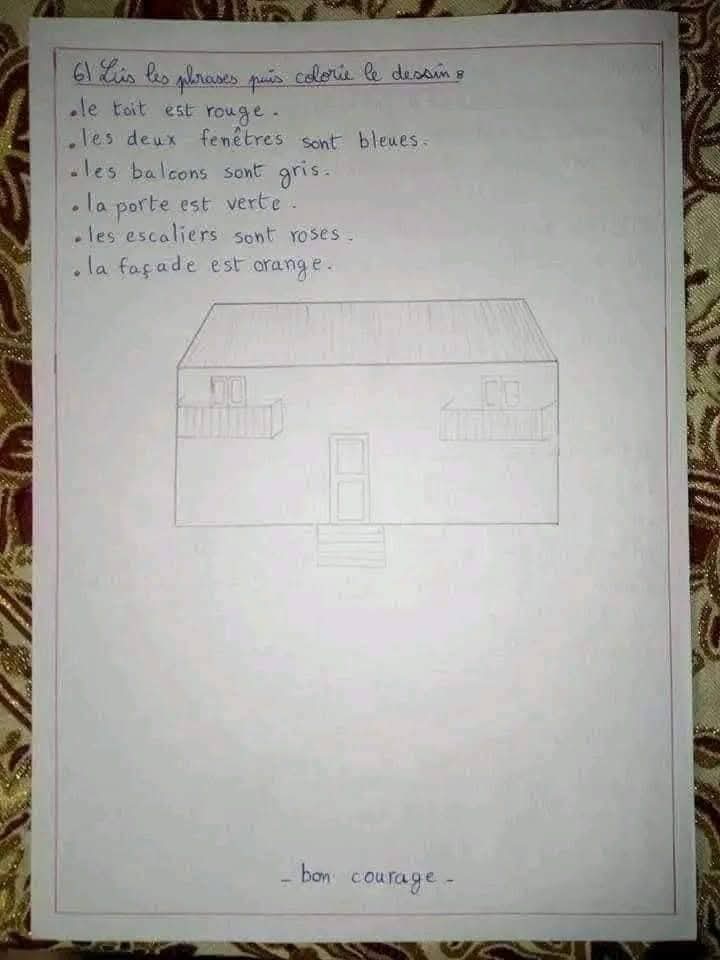 6) Lis les phrases puis colorie le dessin :
.le toit est rouge.
.les deux fenêtres sont bleues.
.les balcons sont gris.
.la porte est verte.
.les escaliers sont roses.
.la façade est orange.
- bon courage -